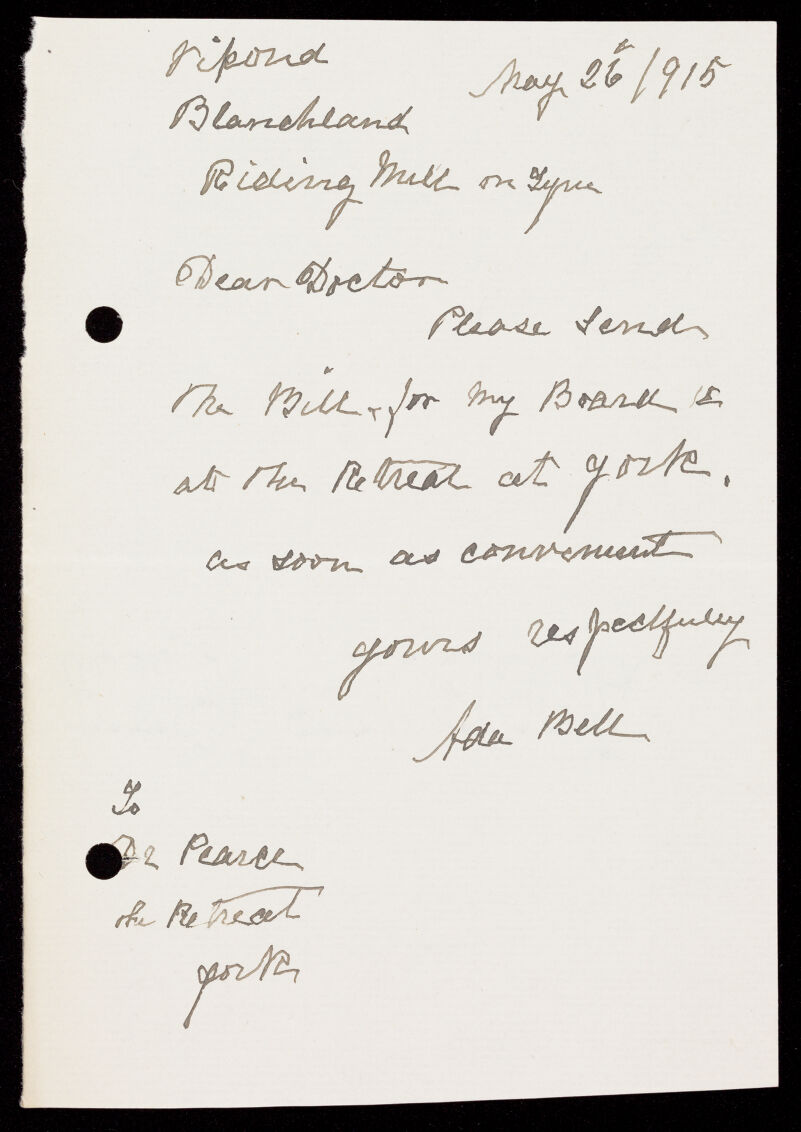 Vipond
May 26 / 1915
Blanchland
Riding Mill on Tyne
Dear Doctor
Please Send
the Bill for my Board &
at the Retreat at york.
as soon as convenient
yours respectfully
Ada Bell
To
Dr Pearce
the Retreat
york